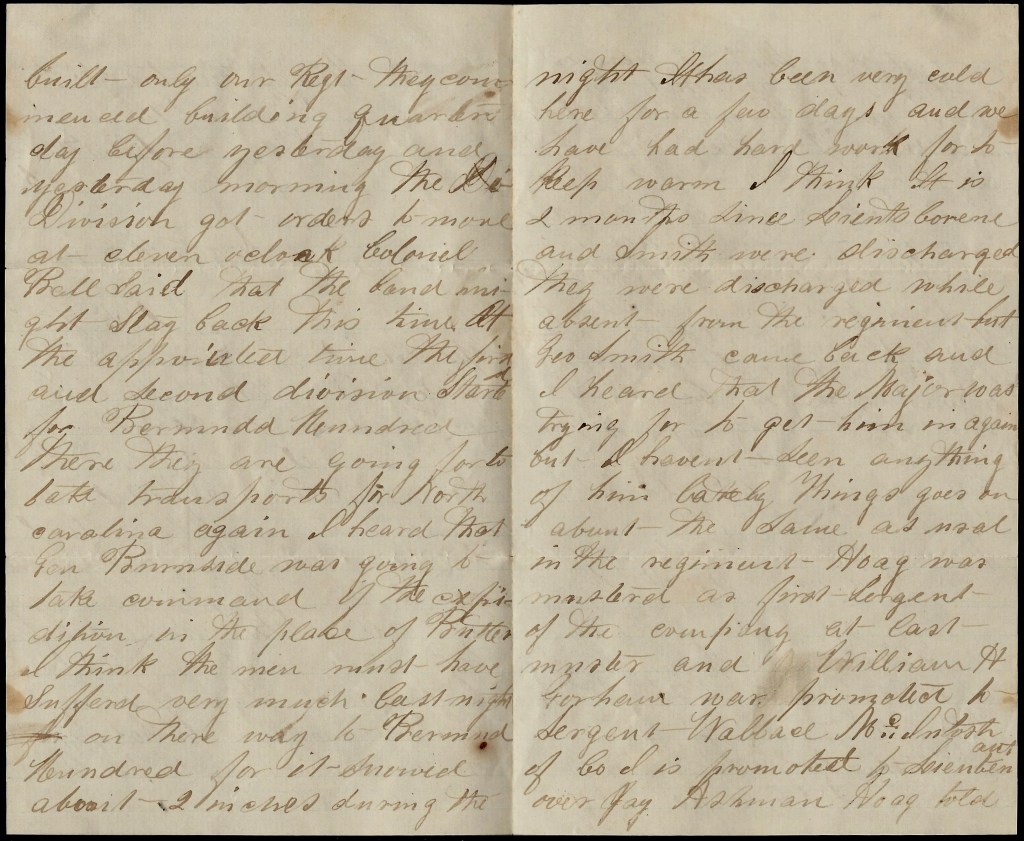 built only our Regt they com
menced building quarters
day before yesterday and
yesterday morning the Di
Division got orders to move
at eleven oclock Colonel
Bell Said that the band mi
ght Stay back this time At
the appointed time the first
and Second division Start
for Bermudd Hundred
there they are going for to
take transports for North
carolina again I heard that
Gen Burnside was going to
take command of the expi
dision in the place of Butler
I think the men must have
Sufferd very much last night
on there way to Bermud
Hundred for it snowed
about 2 inches during the
night It has been very cold
here for a few days and we
have had hard work for to
keep warm I think It is
2 months since
and Smith were discharged
they were discharged while
absent from the regiment but
Geo Smith came back and
I heard that the Major was
trying for to get him in again
but I havent seen anything
of him lately Things goes on
about the same as usal
in the regiment Hoag was
musterd as first Sergent
of the company at last
muster and William H
Gorham was promoted to
Sergent Wallace Mc Intosh
of Co I is promoted to Leienten
ant
over Jay Ashman Hoag told